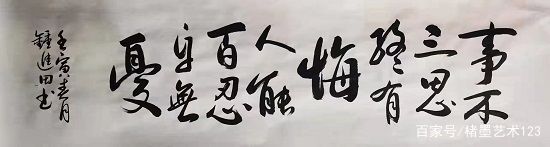 事不
三思
終有
悔
人能
百忍
自無
憂
壬寅春月
鍾進田书
百家号/楮墨艺术123